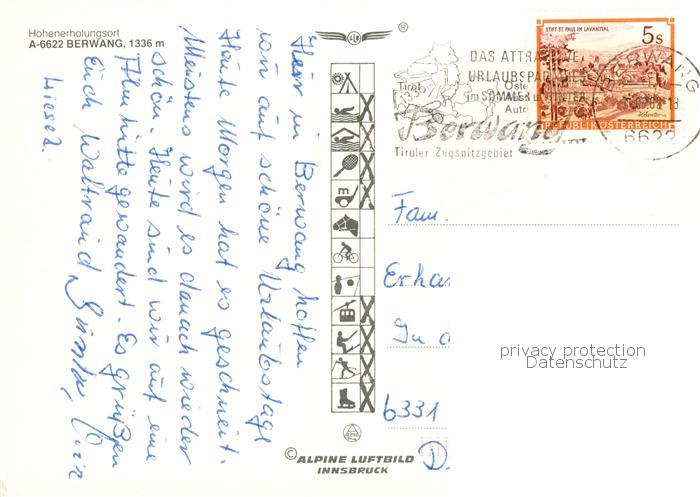 Höhenerholungsort
A-6622 BERWANG, 1336 m
Hier in Berwang hoffen
wir auf schöne Urlaubstage
Heute Morgen hat es geschneit.
Meistens wird es danach wieder
schön. Heute sind wir auf eine
Almhütte gewandert. Es grüßen
Euch Waltraud
Liesel
®
DAS ATTRAKTIVE
URLAUBSPARADIES
im SOMMER u. WINTER
Tirol
Berwang
Tiroler Zugspitzgebiet
STIFT ST. PAUL IM LAVANTTAL
5s
REPUBLIK ÖSTERREICH
BERWANG
6622
Fam.
Erha
In d
6331
D.
privacy protection
Datenschutz
© ALPINE LUFTBILD
INNSBRUCK